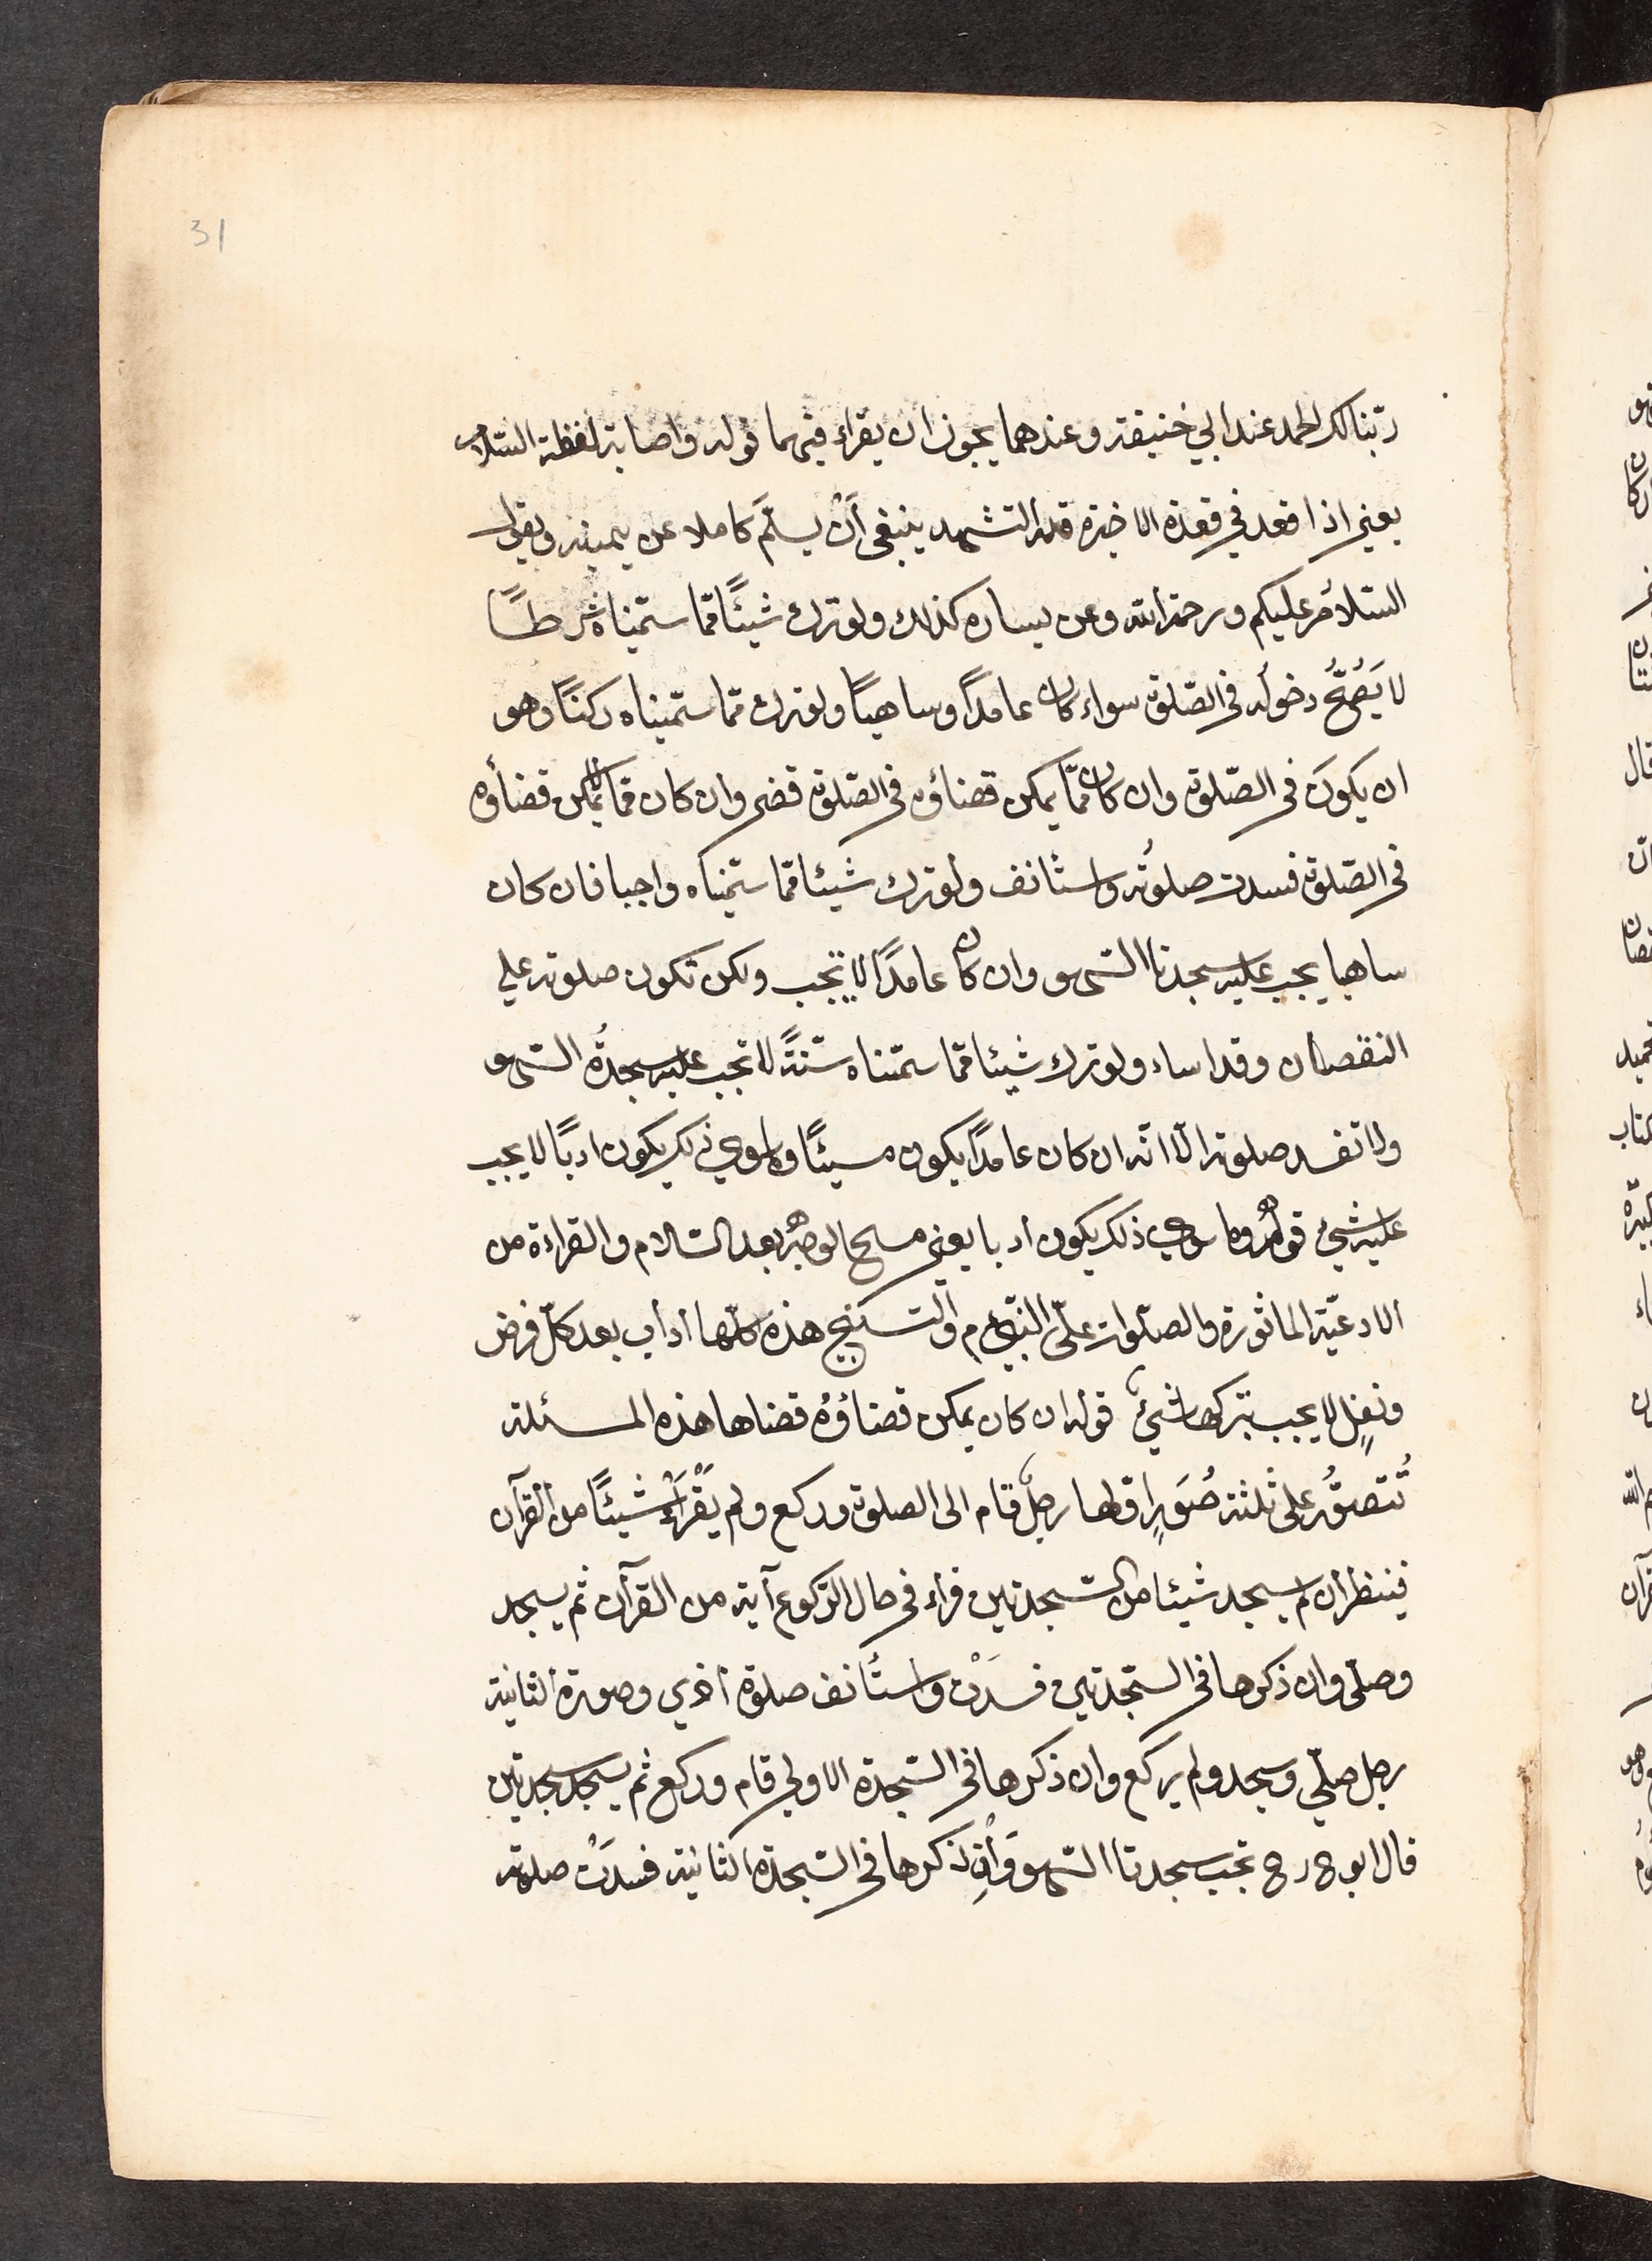 31
ربّنا لك الحمد عند ابي حنيفة وعندهما يجوز ان يقراء فيهما قوله واصابة لفظة السّلام
يعني اذا قعد في قعدة الاخيرة قدر التشهد ينبغى أنْ يسلّمَ كاملا عن يمينه ويقول
السّلامُ عليكم ورحمة الله وعن يساره كذلك ولو ترك شيئًا ممّا سمّيناه شرطًا
لا يَصُحُّ دخولُه فى الصّلوة سواء كان عامدًا وساهيًا ولو ترك ممّا سمّيناه ركنًا وهو
ان يكونَ فى الصّلوة وان كان ممّا يمكن قضاؤه فى الصّلوة قضى وان كان ممّا لا يمكن قضاؤه
فى الصّلوة فسدت صلوتُه واستأنف ولو ترك شيئا ممّا سمّيناه واجبا فان كان
ساهيا يجب عليه سجدتا السّهو وان كان عامدًا لا تجب ولكن تكون صلوته علي
النقصان وقد اساء ولو ترك شيئا ممّا سمّيناه سنّةً لا تجب عليه سجدةُ السّهو
ولا تفسد صلوته الّا انّه ان كان عامدًا يكون مسيئًا وما سوي ذلك يكون ادبًا لا يجب
عليه شيئ قولُهُ وما سوي ذلك يكون ادبا يعنى مسح الوجه بعد السّلام والقراءة من
الادعيّة الماثورة والصّلوات علىّ النّبيّ عم والتسبيح هذه كلّها أداب بعد كلّ فرض
ونفلٍ لا يجب بتركها شيئ قوله ان كان يمكن قضاؤهُ قضاها هذه المسئلة
تُتصوَّرُ على ثلثة صُوَرٍ اوّلها رجل قام الى الصلوة وركع ولم يَقْرَأْ شيئًا من القرآن
فينظر ان لم يسجد شيئا من السّجدتين قراء فى حال الرّكوع آية من القرآن ثم يسجد
وصلّى وان ذكرها فى السّجدتين فسدَتْ واستأنف صلوة أخري وصورة الثانية
رجل صلّي وسجد ولم يركع وان ذكرها فى السّجدة الاولي قام وركع ثم يسجد سجدتين
قال ابو ح رح تجب سجدتا السّهو وَانِ ذكرها فى السّجدة الثانية فسدَتْ صلوته